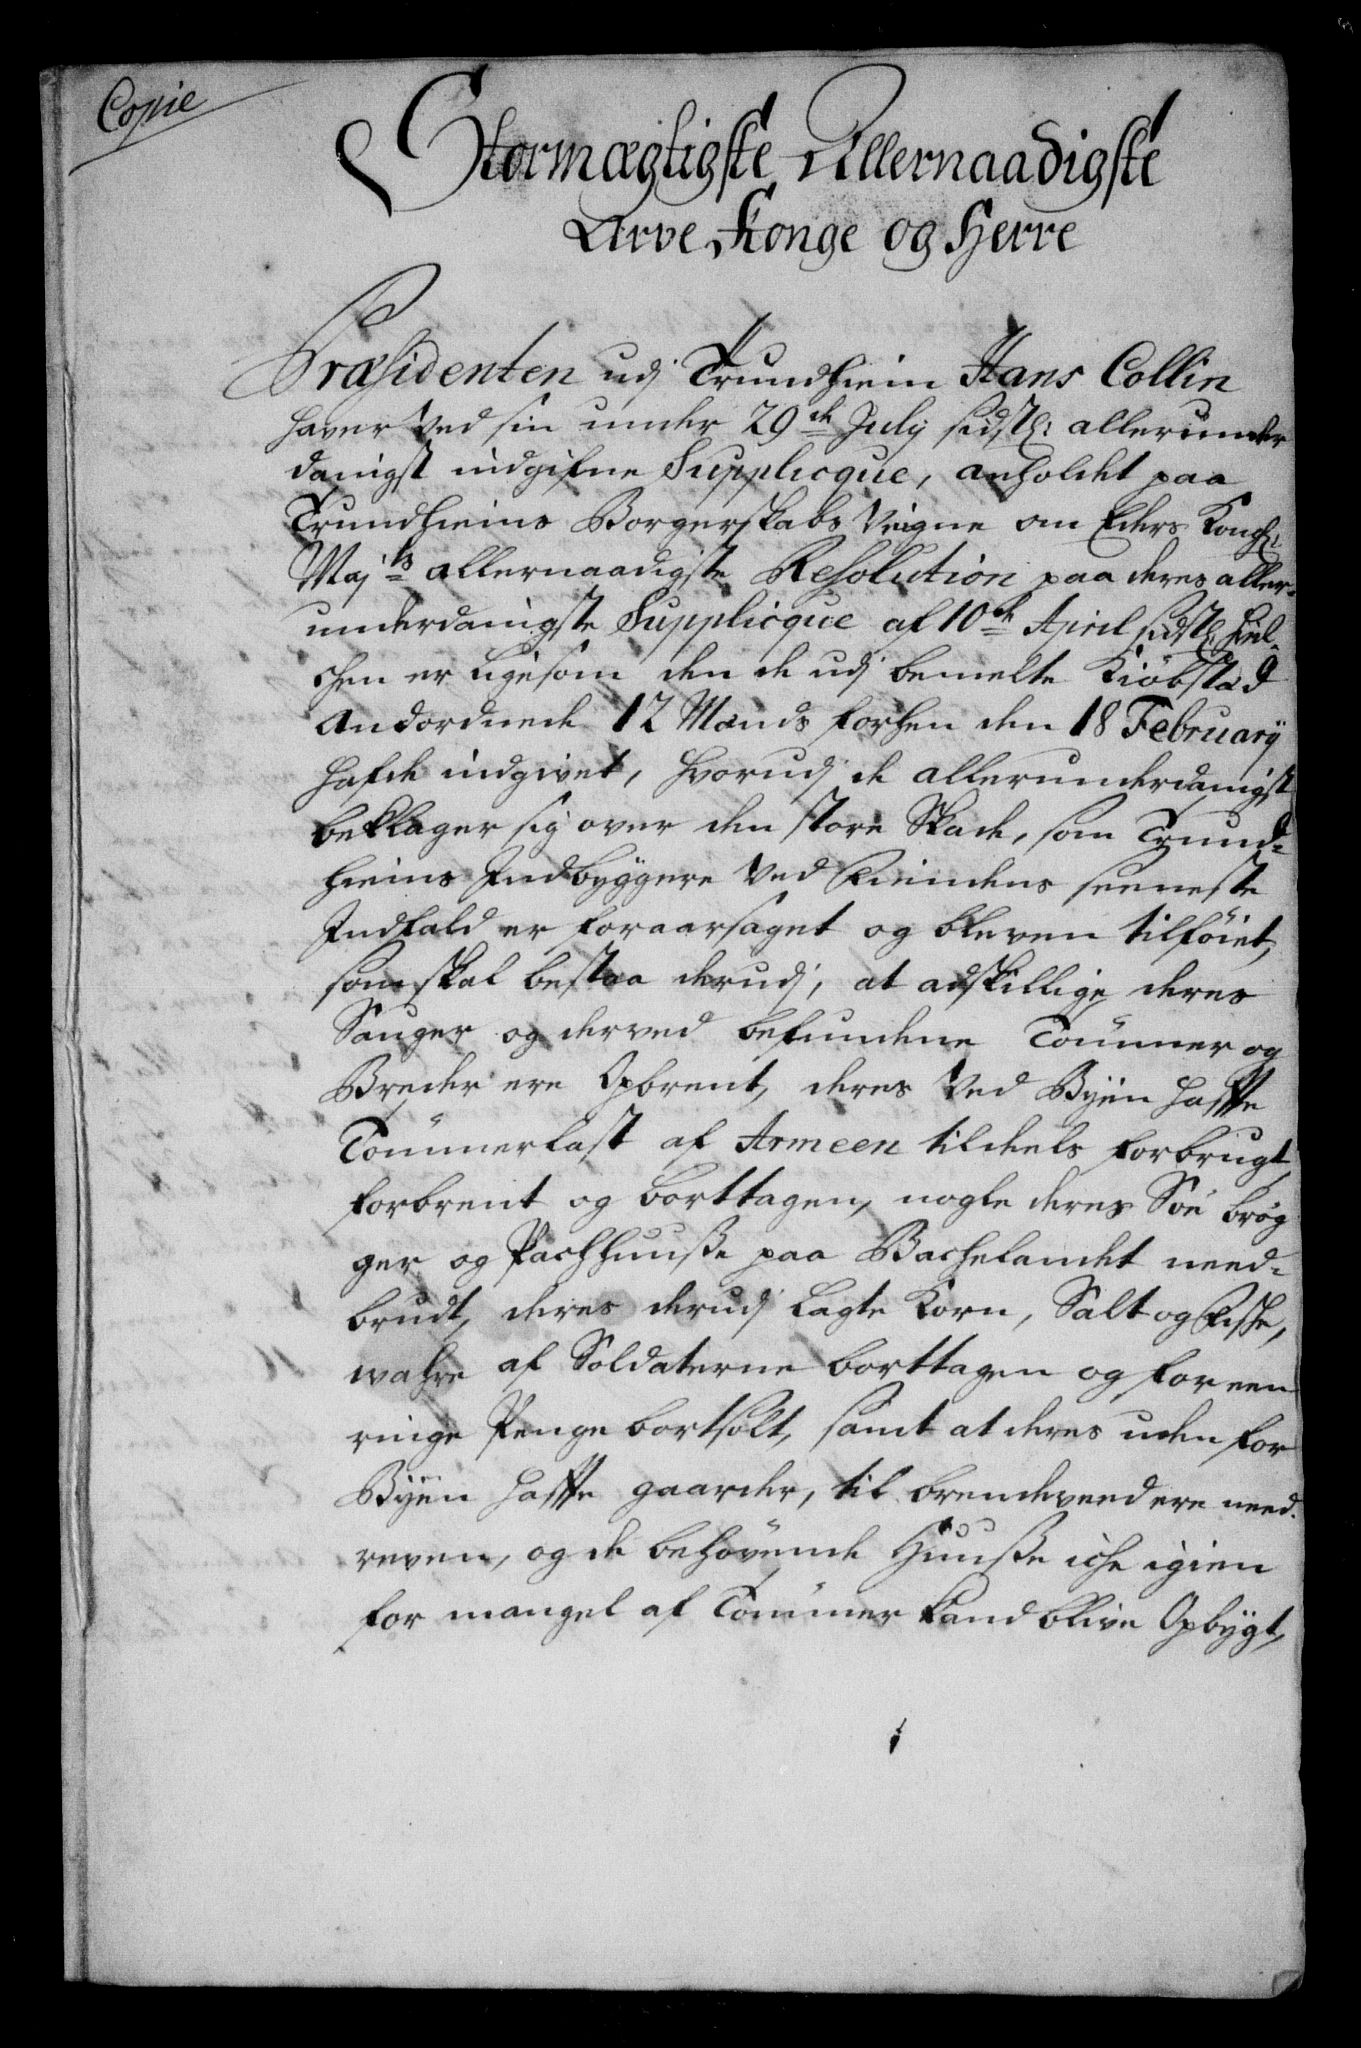 Copie
Stormægtigste Allernaadigste
Arve Konge og Herre
Præsidenten udj Trundhiem Hans Collin
haver Ved sin under 29de July sidstl: allerunder
danigst indgifne Supplicque, anholdet paa
Trundhiems Borgerskabs Veigne om Eders Kongl:
Majts allernaadigste Resolution paa deres aller-
underdanigste Supplicque af 10de April sidstl: hvil-
chen er ligesom den de udj bemelte Kiöbstæd
Andordnede 12 Mænds forhen den 18 February
hafde indgivet, hvorudj de allerunderdanigst
beklager sig over den store Skade, som Trund-
hiems Indbyggere Ved Fiendens seeneste
Indfald er foraarsaget og bleven tilföiet,
som skal bestaa derudj, at adskillige deres
Sauger og derved befundene Tömmer og
Breder ere Opbrent, deres Ved Byen hafte
Tömmerlast af Armeen tildeels forbrugt,
forbrent og borttagen, nogle deres Söe brög
ger og Pachhuuße paa Bachelandet need-
brudt, deres derudj lagte Korn, Salt og Fishe,
wahre af Soldaterne borttagen og for een
ringe Penge bortsolt, samt at deres uden for
Byen hafte gaarder, til brendeveed ere need-
reven, og de behövende Huuße iche igien
for mangel af Tömmer kand blive Opbygt,